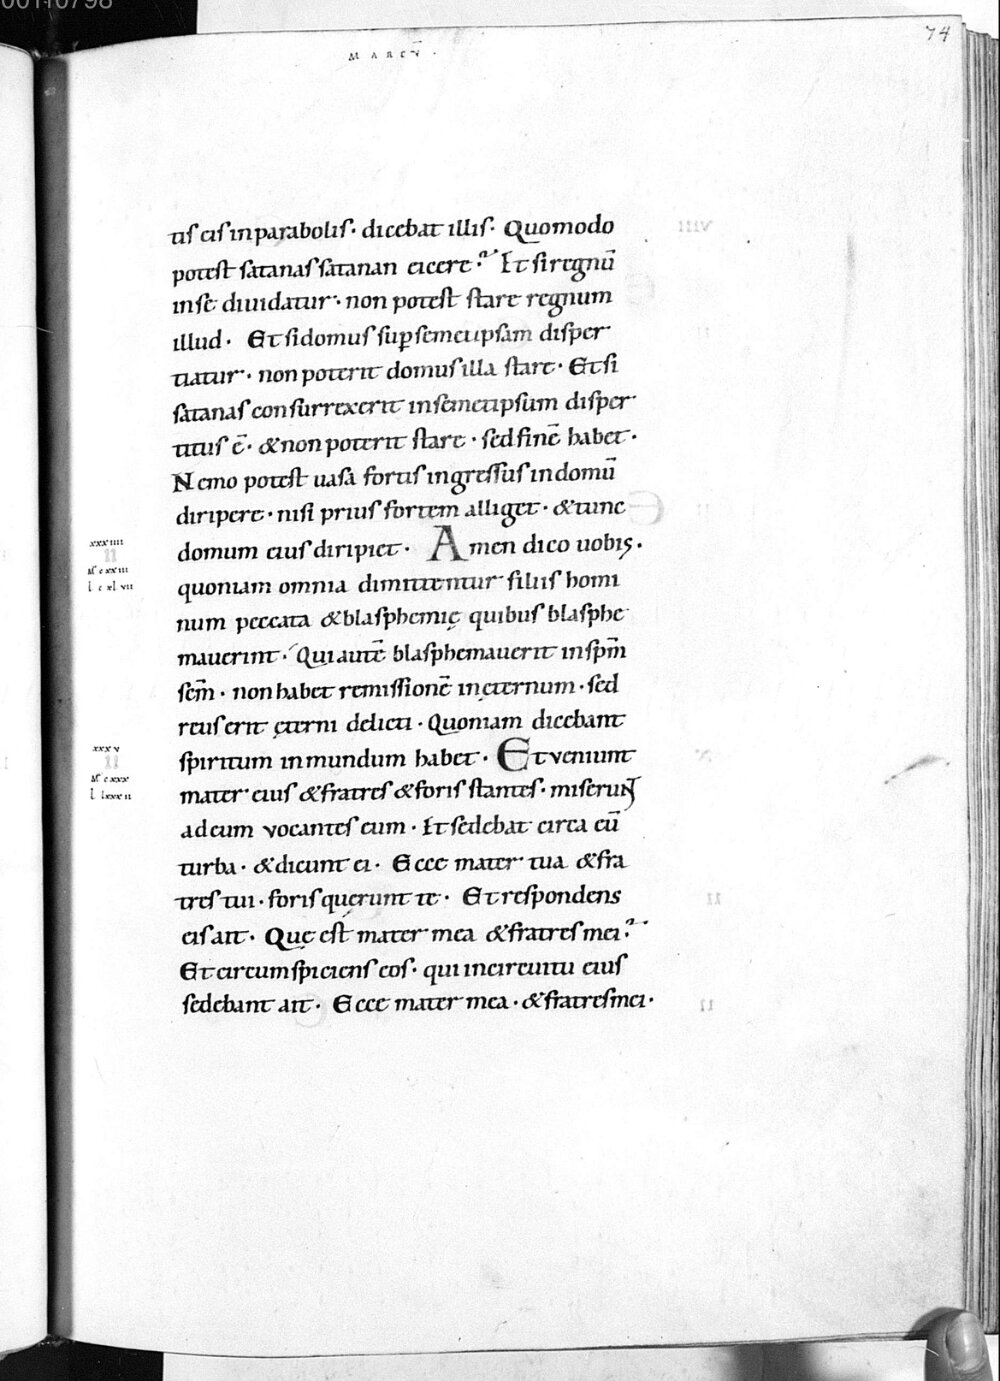 00110798
MARCV̄.
74
tis eis in parabolis· dicebat illis· Quomodo
potest satanas satanan eicere? Et si regnū
in se diuidatur· non potest stare regnum
illud· Et si domus sup̱ semetipsam disper
tiatur· non poterit domus illa stare· Et si
satanas consurrexerit in semetipsum disper
titus ē· & non poterit stare· sed finē habet·
Nemo potest uasa fortis ingressus in domū
diripere· nisi prius fortem alliget· & tunc
domum eius diripiet· Amen dico uobis·
xxxiiii
II
Mͬ cxxiii
l cxlvii
quoniam omnia dimittentur filiis homi
num peccata & blasphemię quibus blasphe
mauerint· Qui autē blasphemauerit in sp̄m
sc̄m· non habet remissionē in ęternum· sed
reus erit ęterni delicti· Quoniam dicebant
spiritum inmundum habet· Et veniunt
xxxv
II
Mͬ cxxx
l lxxxii
mater eius & fratres & foris stantes· miserunt
ad eum vocantes eum· Et sedebat circa eū
turba· & dicunt ei· Ecce mater tua & fra
tres tui· foris quęrunt te· Et respondens
eis ait· Quę est mater mea & fratres mei?
Et circumspiciens eos· qui in circuitu eius
sedebant ait· Ecce mater mea· & fratres mei·